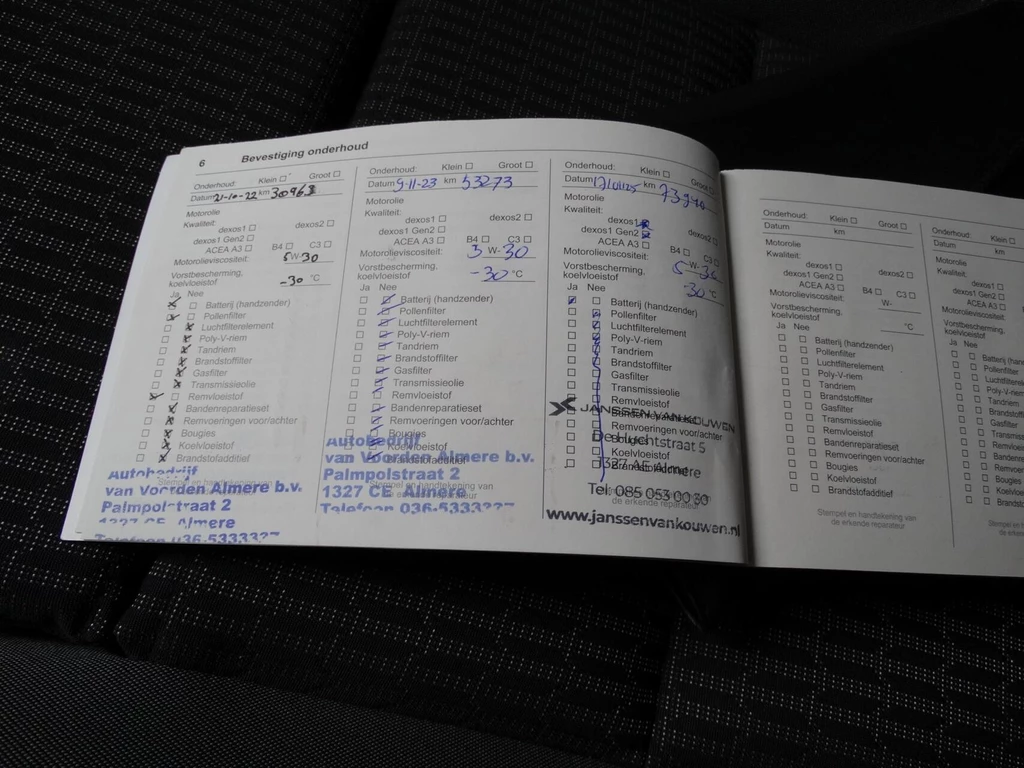 6 Bevestiging onderhoud
Onderhoud: Klein Groot
Datum 21-10-22 km 30963
Motorolie
Kwaliteit:
dexos1 dexos2
dexos1 Gen2
ACEA A3 B4 C3
Motorolieviscositeit: 5 W- 30
Vorstbescherming,
koelvloeistof -30 °C
Ja Nee
Batterij (handzender)
Pollenfilter
Luchtfilterelement
Poly-V-riem
Tandriem
Brandstoffilter
Gasfilter
Transmissieolie
Remvloeistof
Bandenreparatieset
Remvoeringen voor/achter
Bougies
Koelvloeistof
Brandstofadditief
Autobedrijf
van Voorden Almere b.v.
Palmpolstraat 2
1327 CE Almere
Telefoon 036-5333
Onderhoud Klein Groot
Datum 9-11-23 km 53273
Motorolie
Kwaliteit:
dexos1 dexos2
dexos1 Gen2
ACEA A3 B4 C3
Motorolieviscositeit: W- 30
Vorstbescherming,
koelvloeistof -30 °C
Ja Nee
Batterij (handzender)
Pollenfilter
Luchtfilterelement
Poly-V-riem
Tandriem
Brandstoffilter
Gasfilter
Transmissieolie
Remvloeistof
Bandenreparatieset
Remvoeringen voor/achter
Bougies
Koelvloeistof
Brandstofadditief
Autobedrijf
van Voorden Almere b.v.
Palmpolstraat 2
1327 CE Almere
Stempel en handtekening van
de erkende reparateur
Telefoon 036-5333
Onderhoud: Klein Groot
Datum 17/01/25 km
Motorolie
Kwaliteit:
dexos1 dexos2
dexos1 Gen2
ACEA A3 B4 C3
Motorolieviscositeit: 5 W-
Vorstbescherming,
koelvloeistof -30 °C
Ja Nee
Batterij (handzender)
Pollenfilter
Luchtfilterelement
Poly-V-riem
Tandriem
Brandstoffilter
Gasfilter
Transmissieolie
Remvloeistof
Bandenreparatieset
Remvoeringen voor/achter
Bougies
Koelvloeistof
Brandstofadditief
JANSSEN VAN KOUWEN
De Huchtstraat 5
Almere
Tel. 085 053 00 30
de erkende reparateur
www.janssenvankouwen.nl
Onderhoud: Klein Groot
Datum km
Motorolie
Kwaliteit:
dexos1 dexos2
dexos1 Gen2
ACEA A3 B4 C3
Motorolieviscositeit: W-
Vorstbescherming,
koelvloeistof °C
Ja Nee
Batterij (handzender)
Pollenfilter
Luchtfilterelement
Poly-V-riem
Tandriem
Brandstoffilter
Gasfilter
Transmissieolie
Remvloeistof
Bandenreparatieset
Remvoeringen voor/achter
Bougies
Koelvloeistof
Brandstofadditief
Stempel en handtekening van
de erkende reparateur
Onderhoud: Klein
Datum km
Motorolie
Kwaliteit:
dexos1
dexos1 Gen2
ACEA A3
Motorolieviscositeit:
Vorstbescherming,
koelvloeistof
Ja Nee
Pollenfilter
Poly-V-riem
Tandriem
Gasfilter